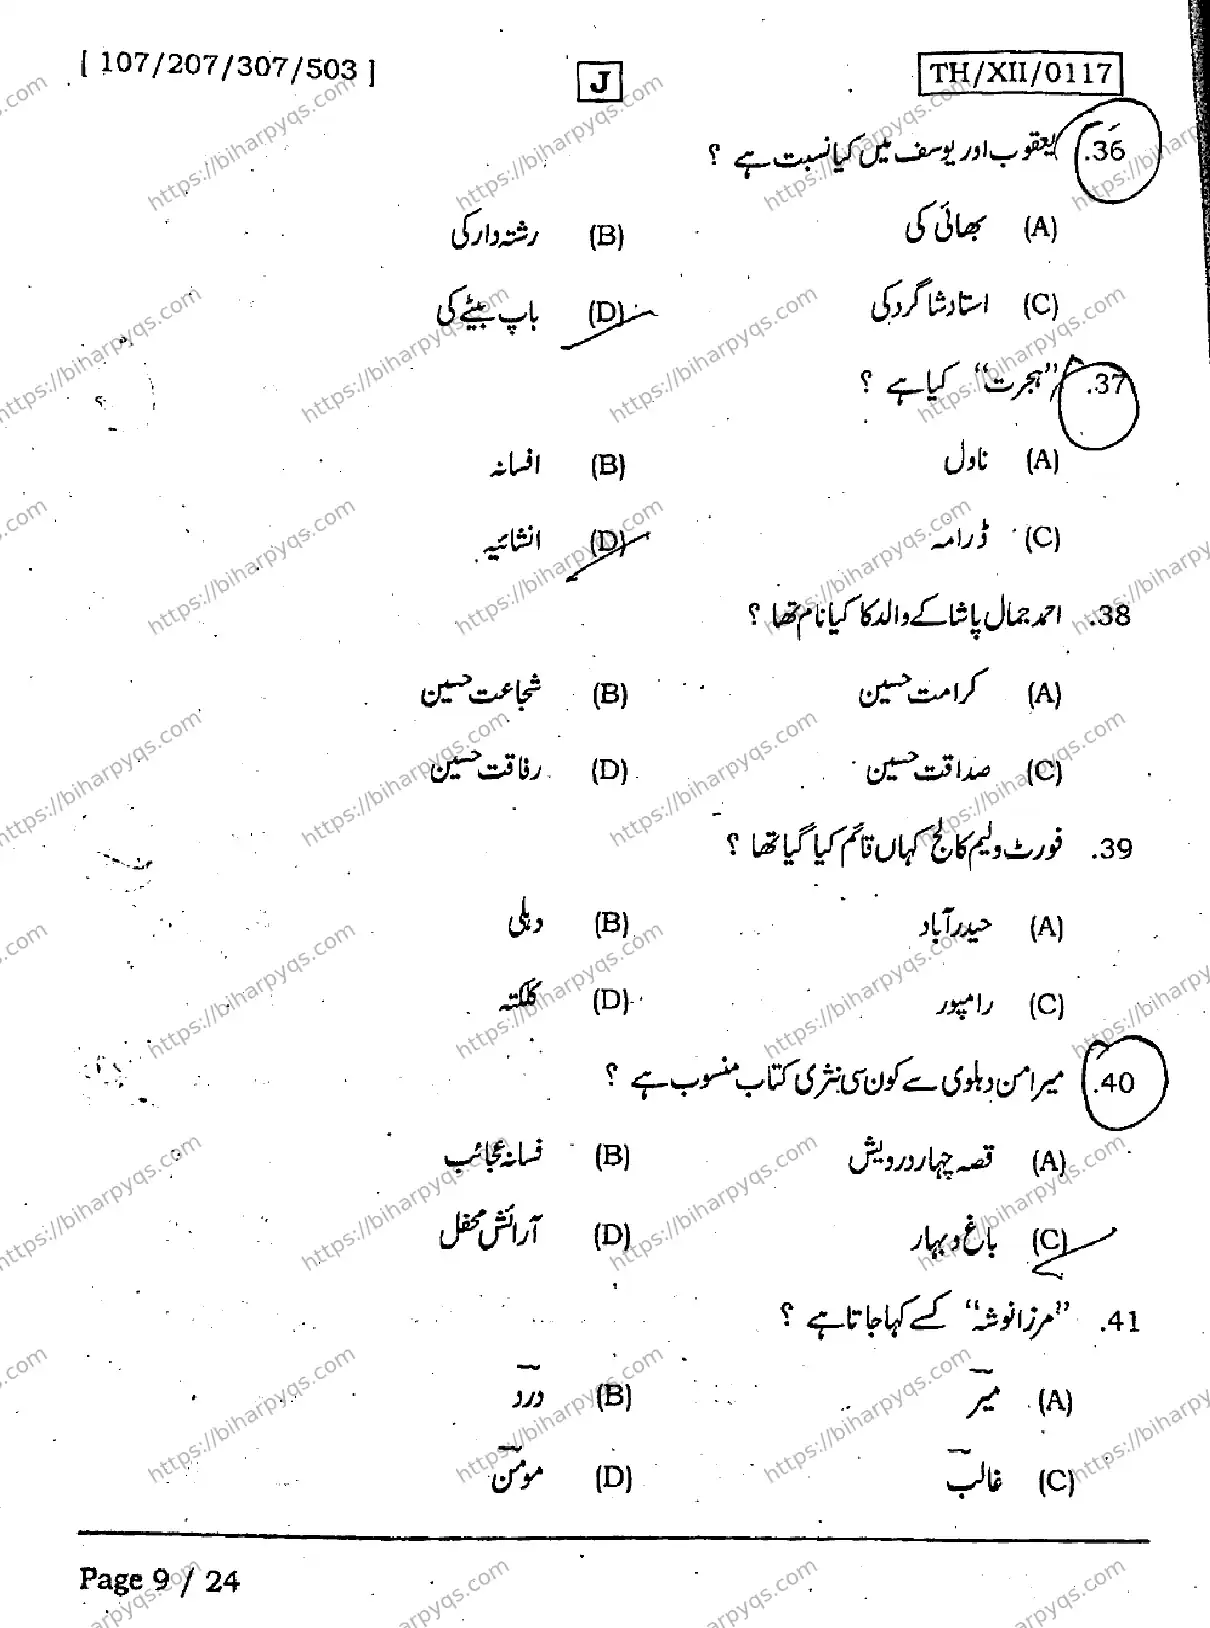 [ 107/207/307/503 ]
J
TH/XII/0117
36. یعقوب اور یوسف میں کیا نسبت ہے ؟
(A) بھائی کی (B) رشتہ دار کی
(C) استاد شاگرد کی (D) باپ بیٹے کی
37. ”ہجرت“ کیا ہے ؟
(A) ناول (B) افسانہ
(C) ڈرامہ (D) انشائیہ
38. احمد جمال پاشا کے والد کا کیا نام تھا ؟
(A) کرامت حسین (B) شجاعت حسین
(C) صداقت حسین (D) رفاقت حسین
39. فورٹ ولیم کالج کہاں قائم کیا گیا تھا ؟
(A) حیدر آباد (B) دہلی
(C) رامپور (D) کلکتہ
40. میر امن دہلوی سے کون سی نثری کتاب منسوب ہے ؟
(A) قصہ چہار درویش (B) فسانہ عجائب
(C) باغ و بہار (D) آرائش محفل
41. ”مرزا نوشہ“ کسے کہا جاتا ہے ؟
(A) میر (B) درد
(C) غالب (D) مومن
Page 9 / 24
https://biharpyqs.com